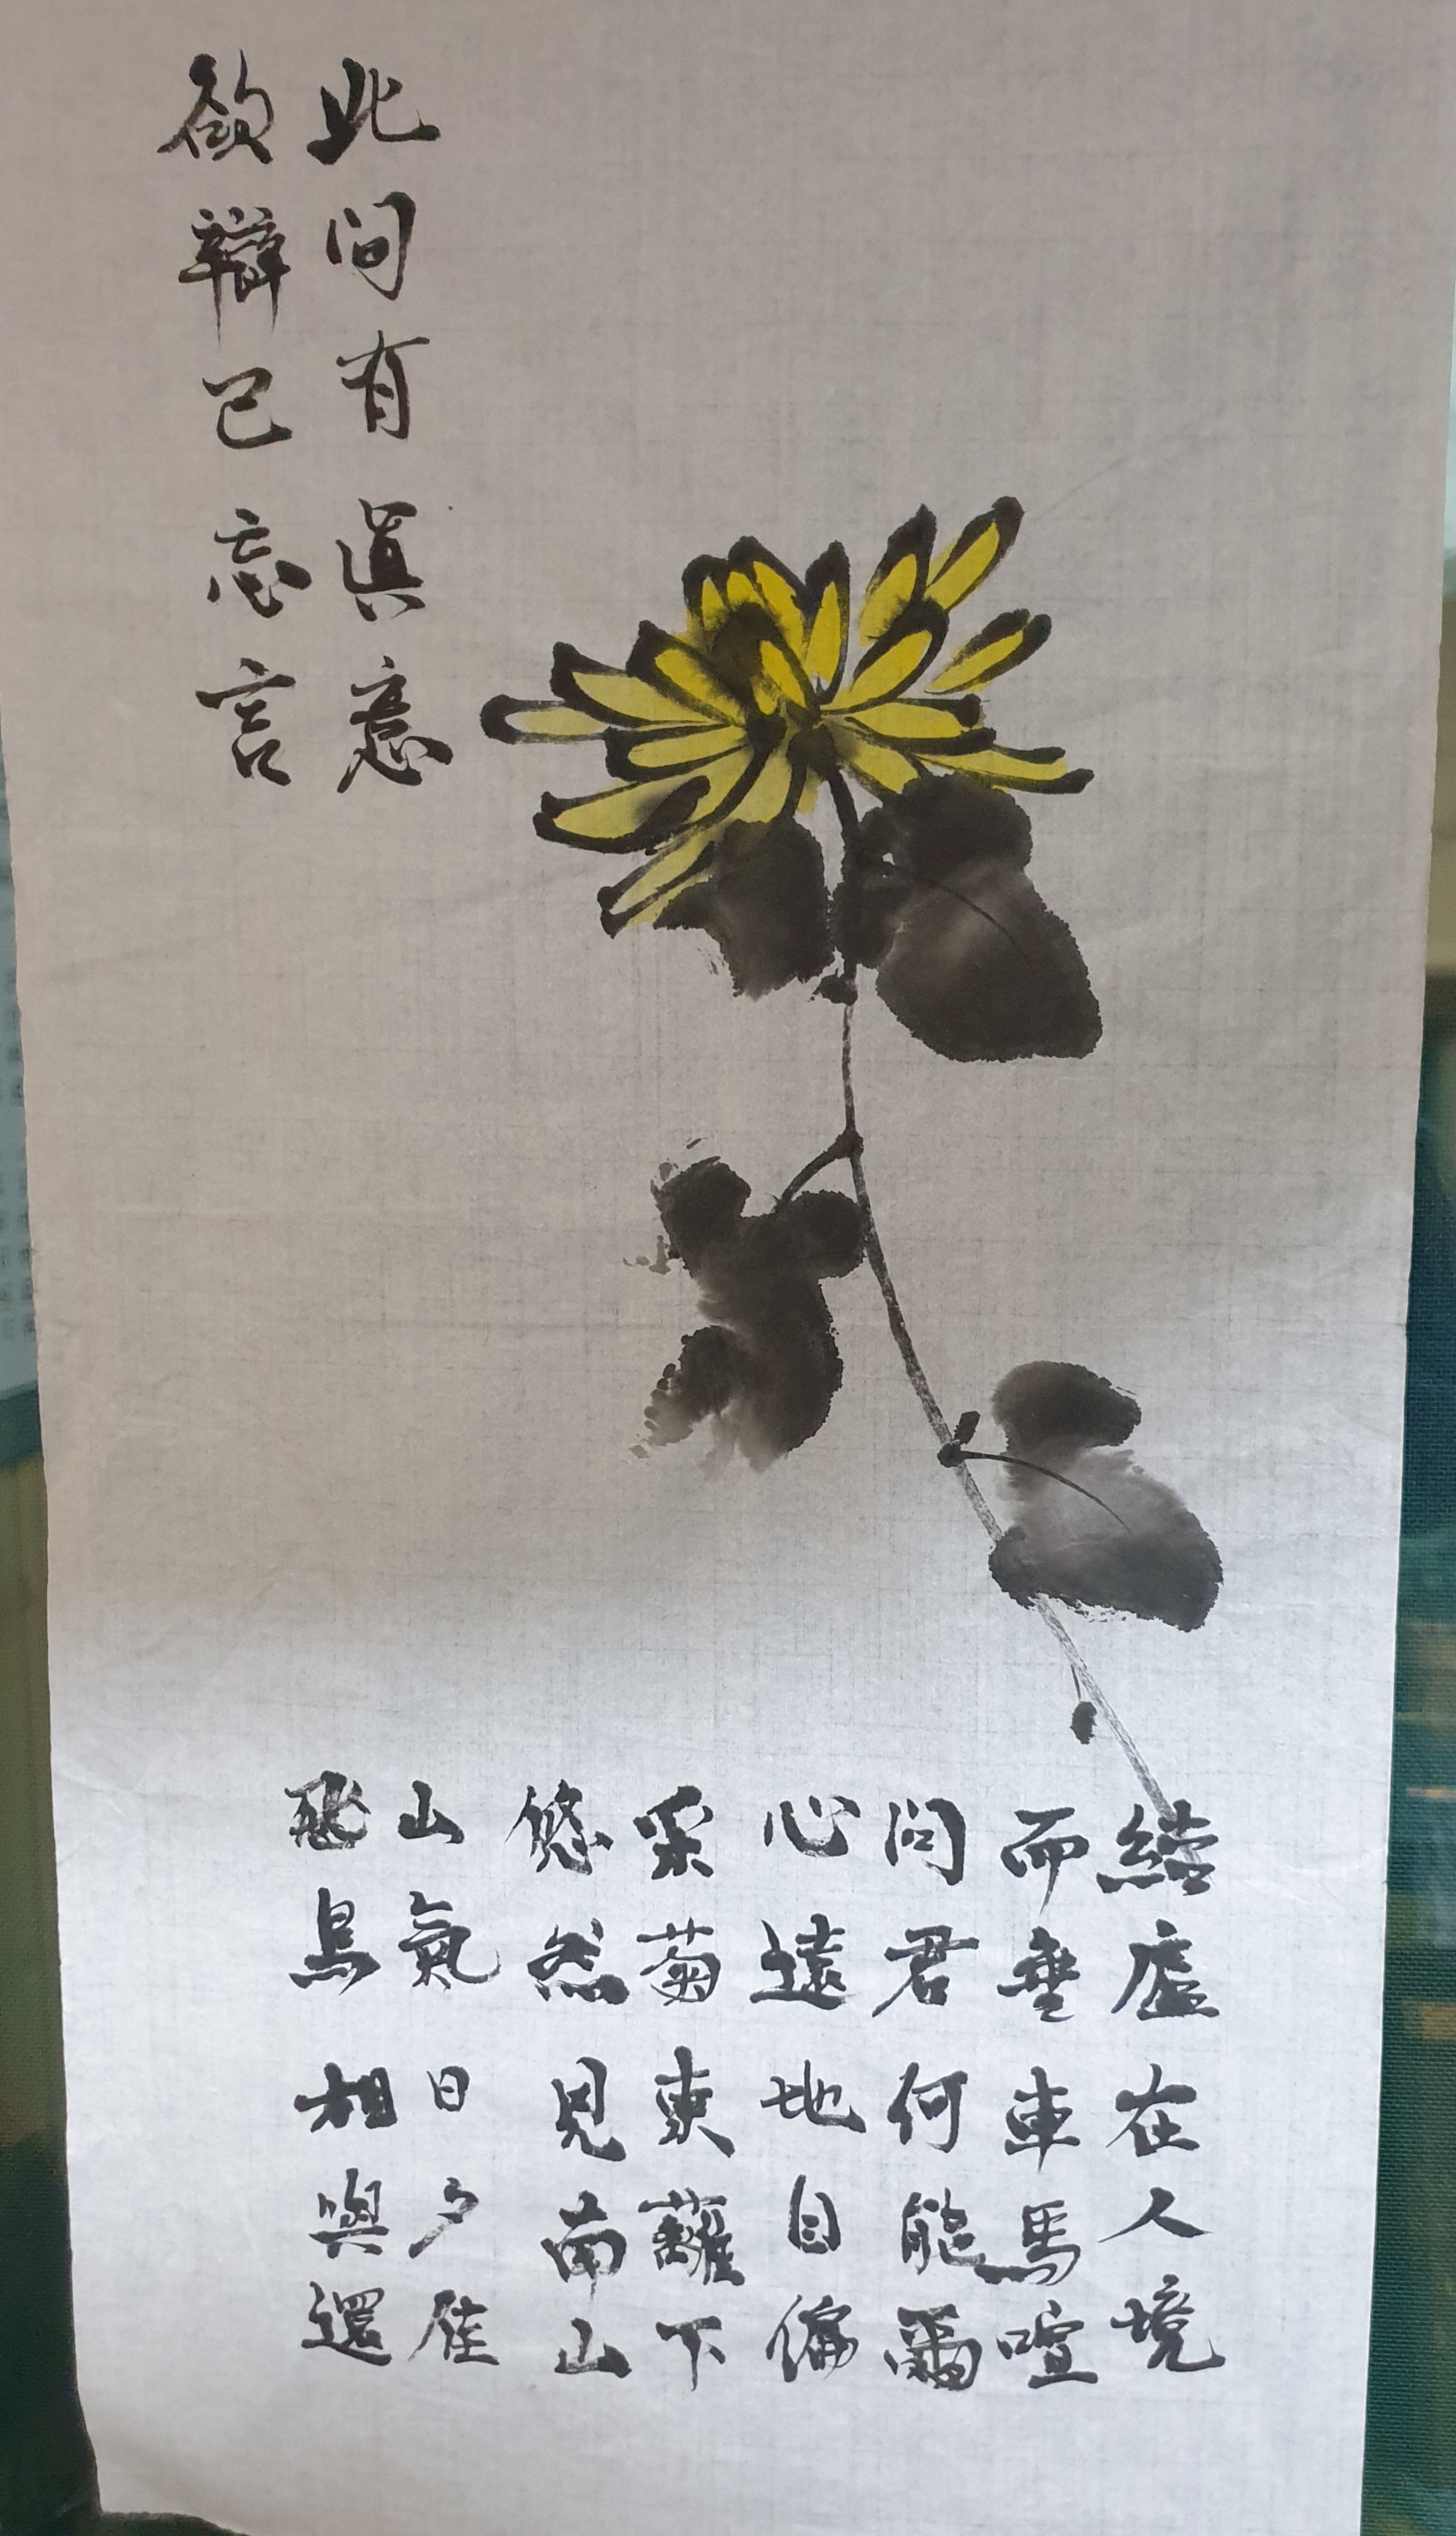 結廬在人境
而無車馬喧
問君何能爾
心遠地自偏
采菊東蘺下
悠然見南山
山氣日夕佳
飛鳥相與還
此間有眞意
欲辯已忘言